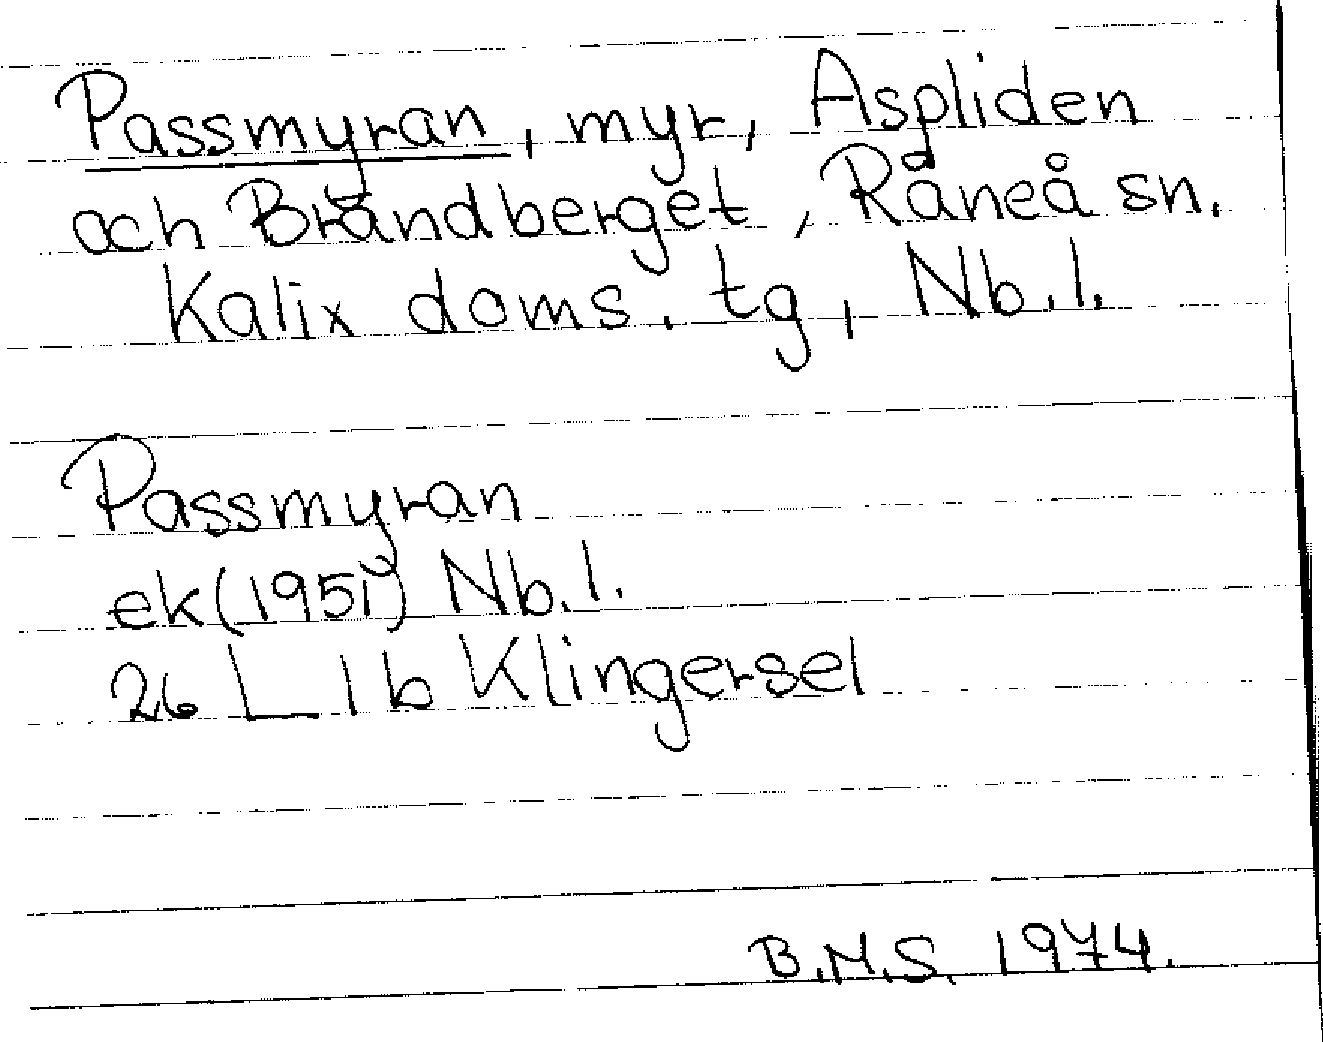 Passmyran, myr, Aspliden
och Brändberget, Råneå sn.
Kalix doms. tg, Nb.l.
Passmyran
ek(1951) Nb.l.
26 L 1b Klingersel
B.M.S. 1974.